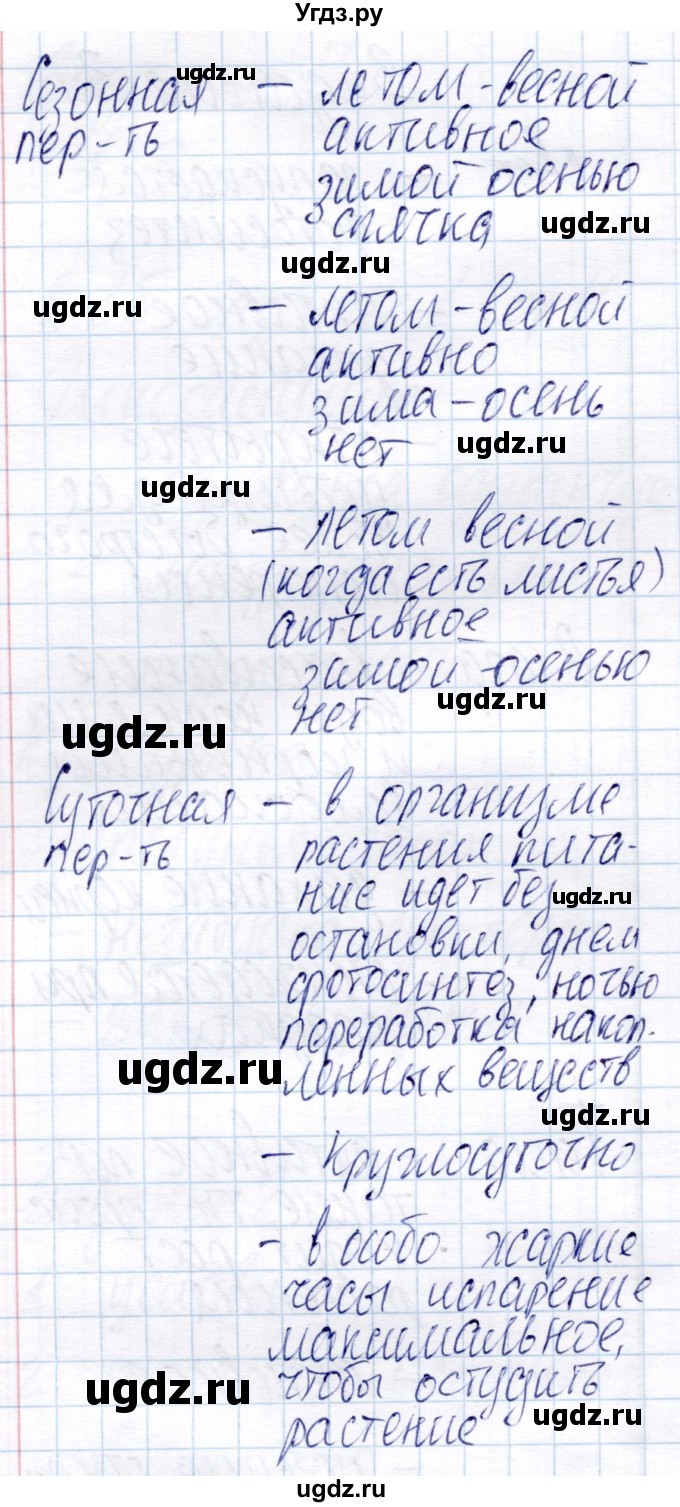 Угдз.ру
Сезонная - летом - весной
пер-ть активное
зимой осенью
спячка
- летом - весной
активно
зима - осень
нет
- летом весной
(когда есть листья)
активное
зимой - осенью
нет
Суточная - в организме
пер-ть растения пита-
ние идет без
остановки, днем
фотосинтез, ночью
переработка накоп-
ленных веществ
- Круглосуточно
- в особо жаркие
часы испарение
максимальное,
чтобы остудить
растение
ugdz.ru
ugdz.ru
ugdz.ru
ugdz.ru
ugdz.ru
ugdz.ru
ugdz.ru
ugdz.ru
ugdz.ru
ugdz.ru
ugdz.ru
ugdz.ru
ugdz.ru
ugdz.ru